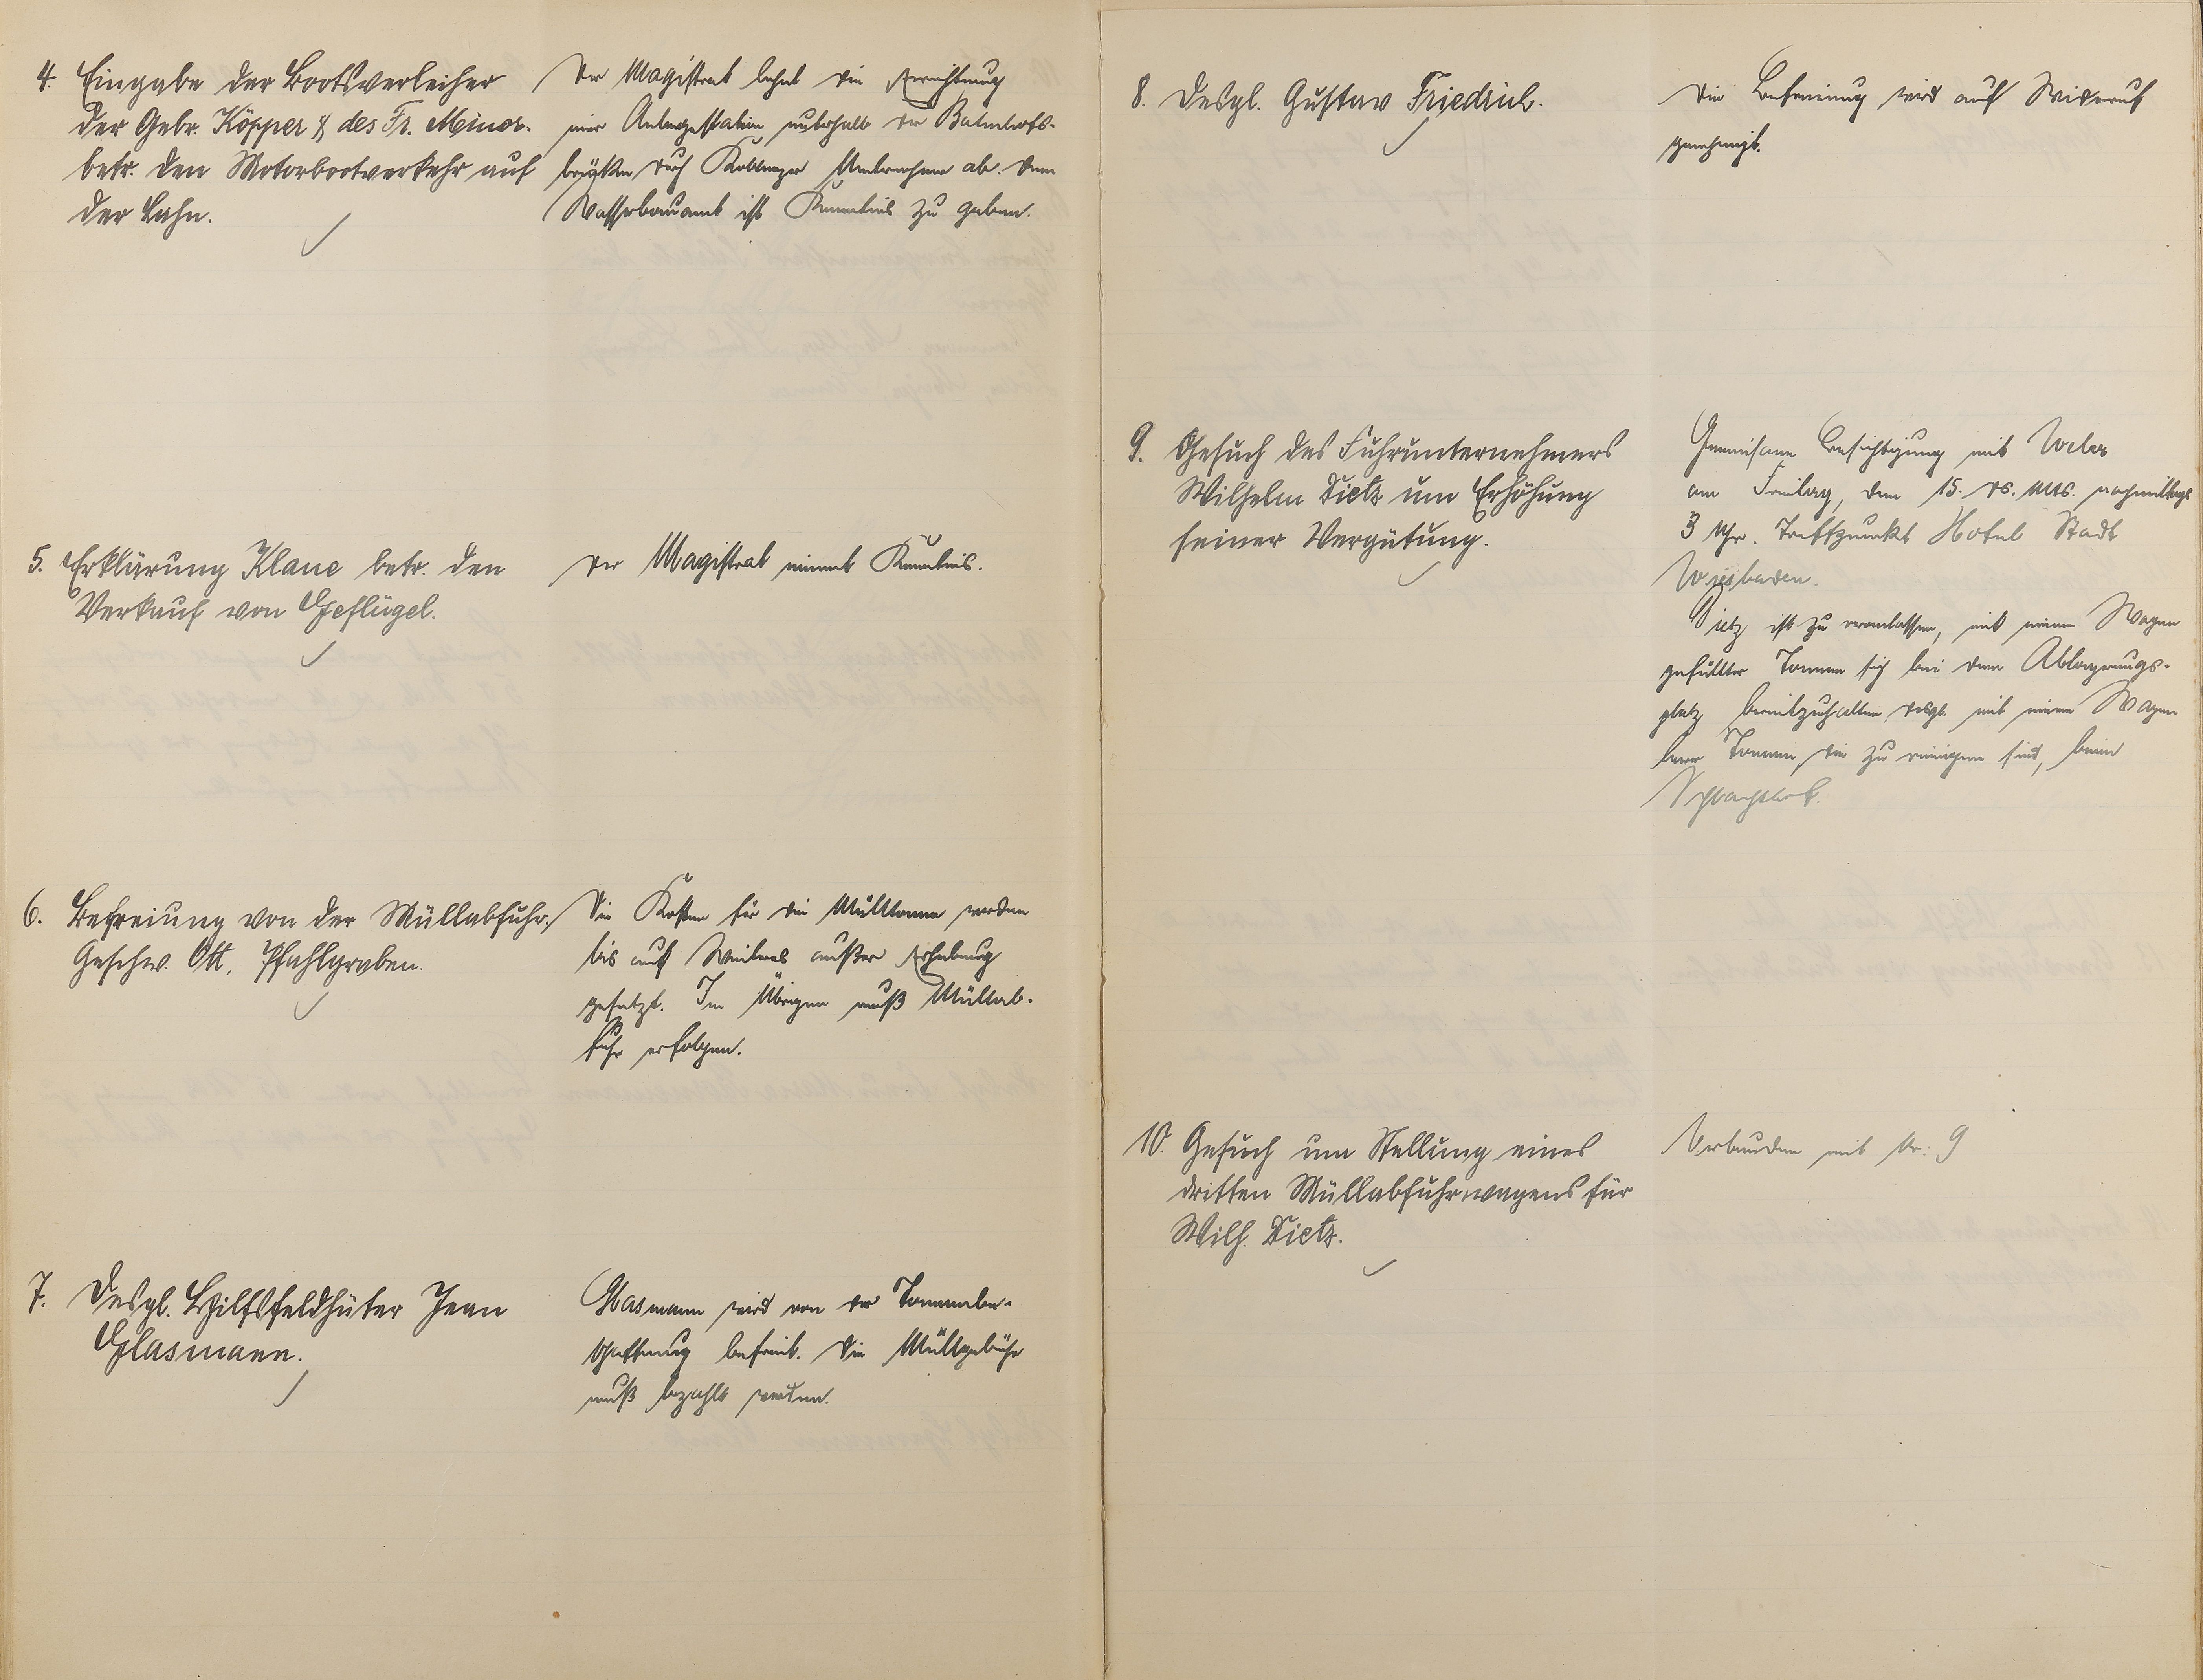 4. Eingabe der Bootsverleiher
der Gebr. Köpper & des Fr. Minor.
betr. den Motorbootverkehr auf
der Lahn.
Der Magistrat lehnt die Errichtung
einer Anlegestation unterhalb der Bahnhofs-
brücke durch Koblenzer Unternehmer ab. Dem
Wasserbauamt ist Kenntnis zu geben.
5. Erklärung Klane betr. den
Verkauf von Geflügel.
Der Magistrat nimmt Kenntnis.
6. Befreiung von der Müllabfuhr.
Geschw. Ott, Pfahlgraben.
Die Kosten für die Mülltonne werden
bis auf Weiteres außer Erhebung
gesetzt. Im Übrigen muß Müllab-
fuhr erfolgen.
7. Desgl. Hilfsfeldhüter Jean
Glasmann.
Glasmann wird von der Tonnenbe-
schaffung befreit. Die Müllgebühr
muß bezahlt werden.
8. Desgl. Gustav Friedrich.
Die Befreiung wird auf Widerruf
genehmigt.
9. Gesuch des Fuhrunternehmers
Wilhelm Dietz um Erhöhung
seiner Vergütung.
Gemeinsame Besichtigung mit Weber
am Freitag, dem 15. ds. Mts. nachmittags
3 Uhr. Treffpunkt Hotel Stadt
Wiesbaden.
Dietz ist zu veranlassen, mit einem Wagen
gefüllter Tonnen sich bei dem Ablagerungs-
platz bereitzuhalten, desgl. mit einem Wagen
leerer Tonnen, die zu reinigen sind, beim
Schlachthof.
10. Gesuch um Stellung eines
dritten Müllabfuhrwagens für
Wilh. Dietz.
Verbunden mit Nr. 9